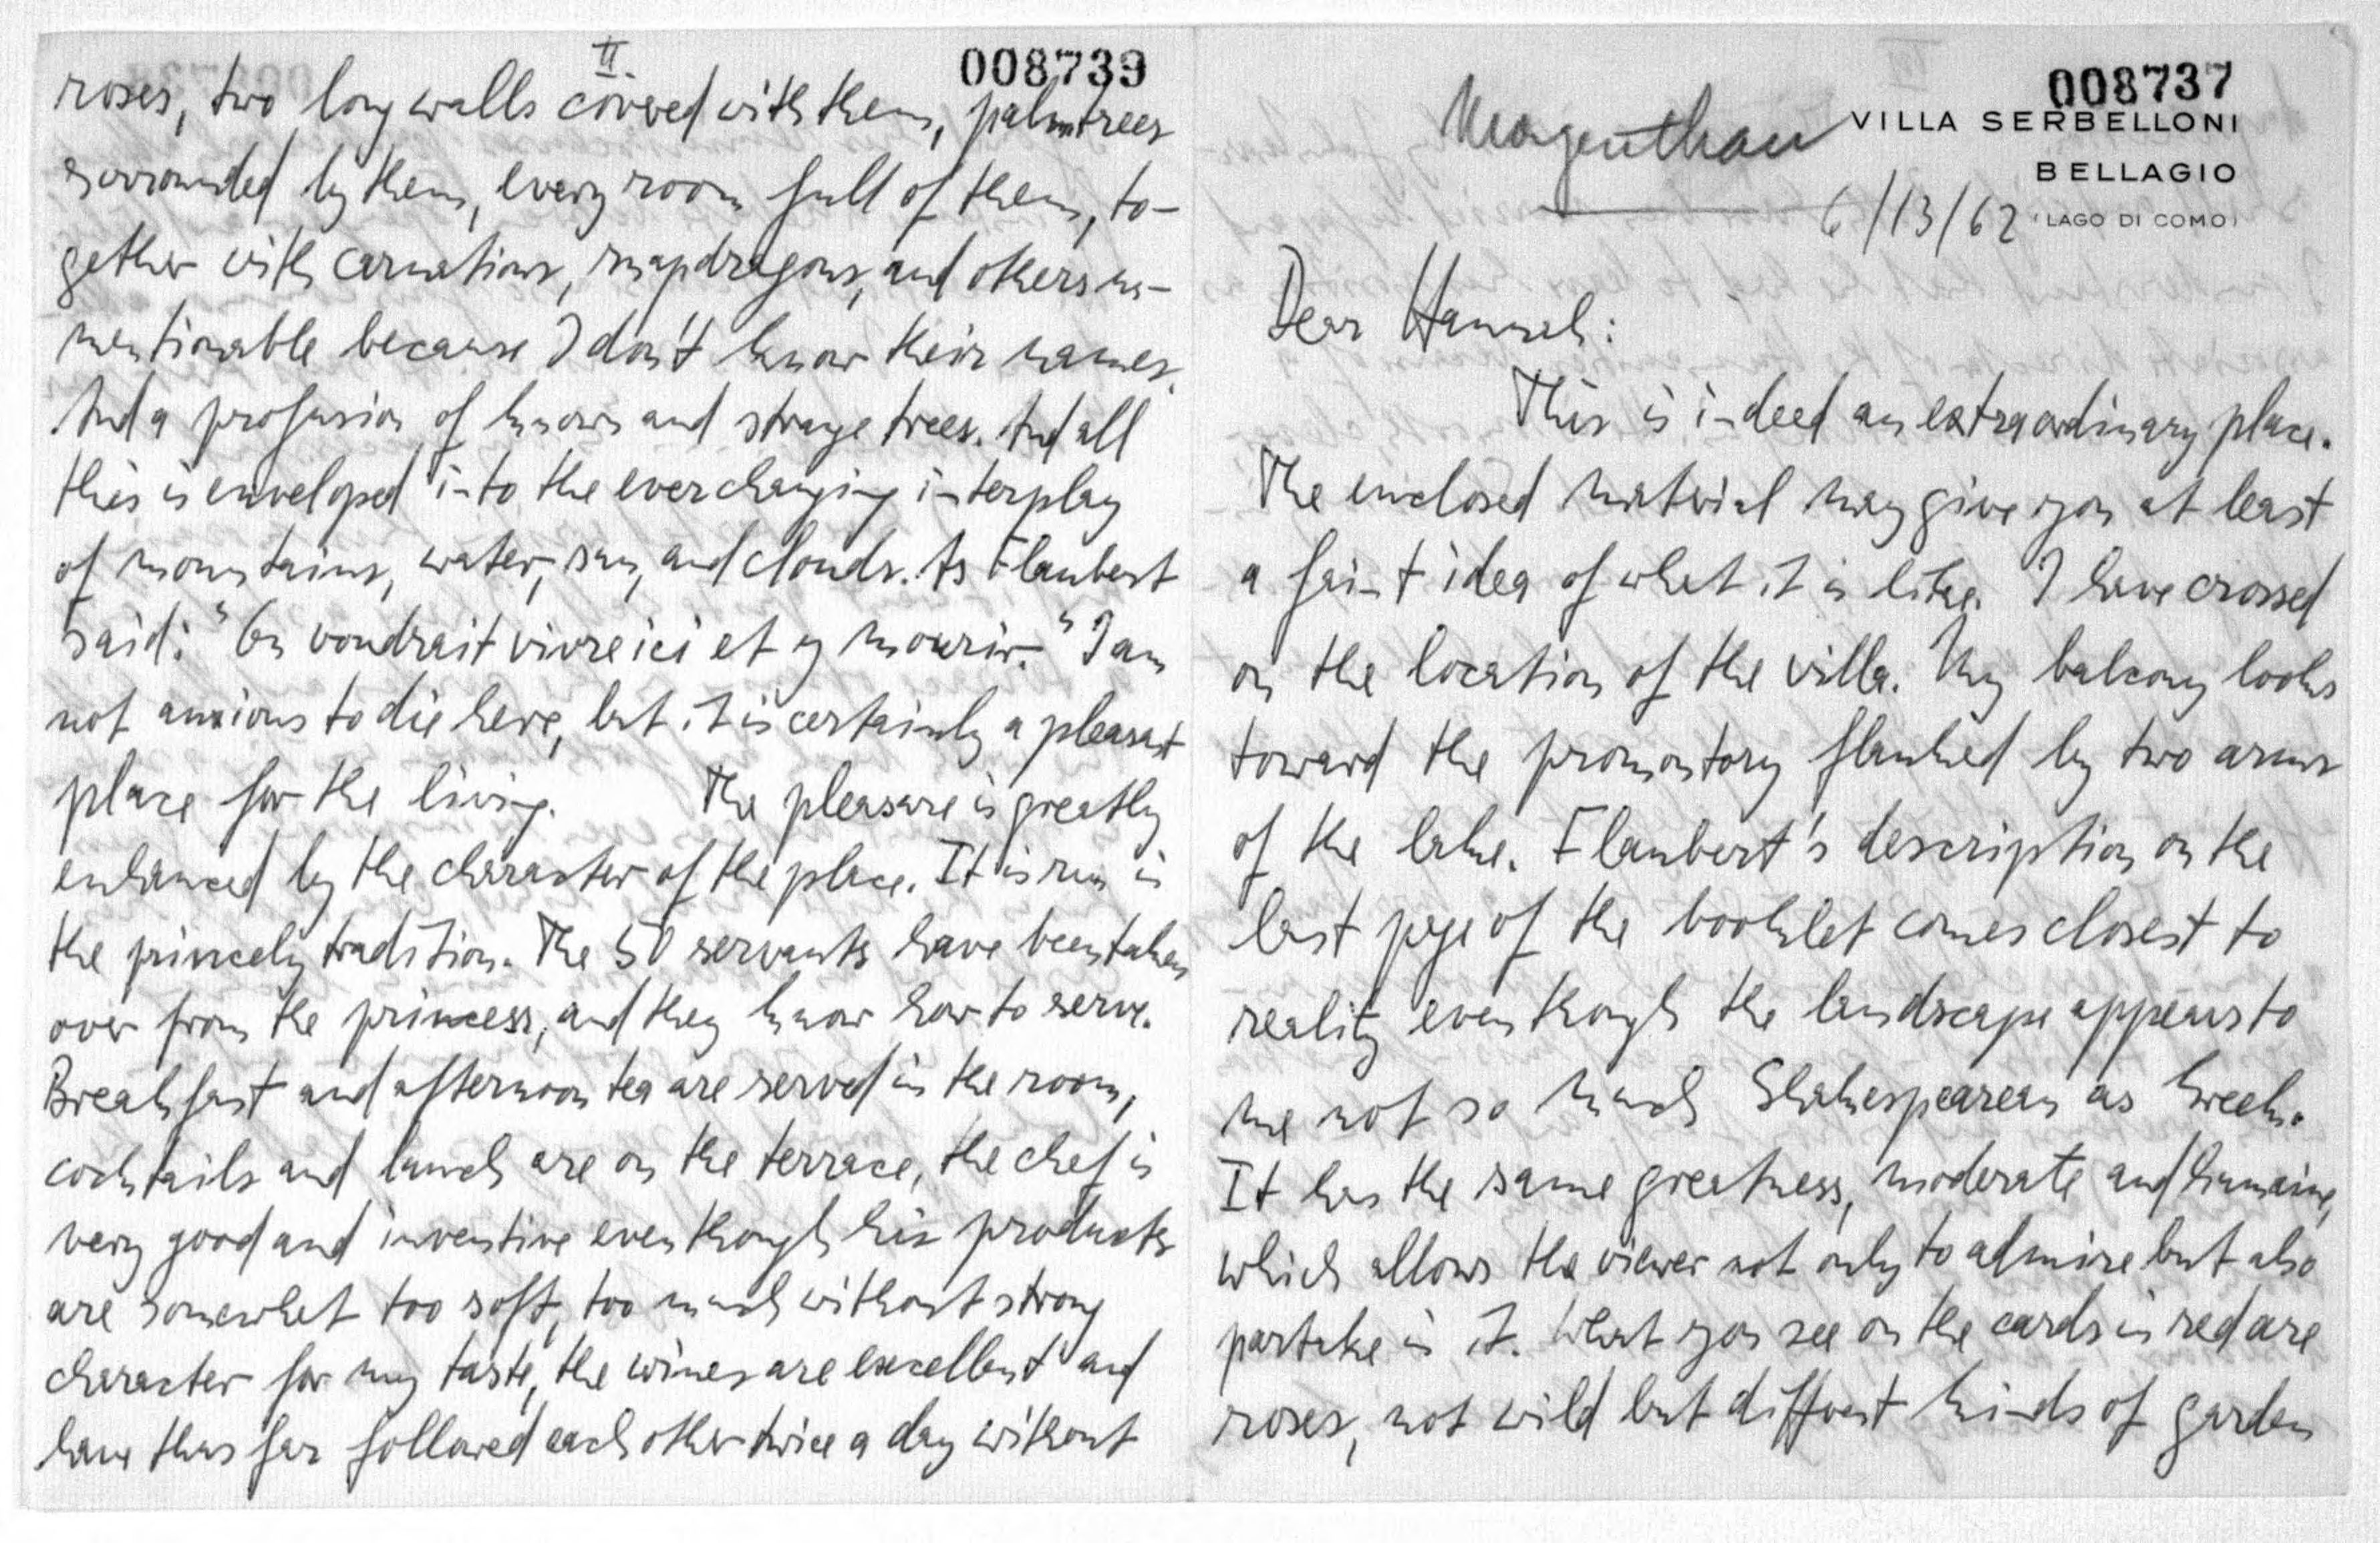 008737
Morgenthau VILLA SERBELLONI
BELLAGIO
6/13/62 (LAGO DI COMO)
Dear Hannah:
This is indeed an extraordinary place.
The enclosed material may give you at least
a faint idea of what it is like. I have crossed
on the location of the villa. My balcony looks
toward the promontory flanked by two arms
of the lake. Flaubert's description on the
last page of the booklet comes closest to
reality even though the landscape appears to
me not so much Shakespearean as Greek.
It has the same greatness, moderate and humaine,
which allows the viewer not only to admire but also
partake in it. What you see on the cards in red are
roses, not wild but diffrent kinds of garden
II.
008739
roses, two long walls covered with them, palmtrees
surrounded by them, every room full of them, to-
gether with carnations, snapdragons, and others un-
mentionable because I don't know their names.
And a profusion of known and strange trees. And all
this is enveloped into the everchanging interplay
of mountains, water, sun, and clouds. As Flaubert
said: "On voudrait vivre ici et y mourir." I am
not anxious to die here, but it is certainly a pleasant
place for the living. The pleasure is greatly
enhanced by the character of the place. It is run in
the princely tradition. The 50 servants have been taken
over from the princess, and they know how to serve.
Breakfast and afternoon tea are served in the room,
cocktails and lunch are on the terrace, the chef is
very good and inventive even though his products
are somewhat too soft, too much without strong
character for my taste, the wines are excellent and
have thus far followed each other twice a day without